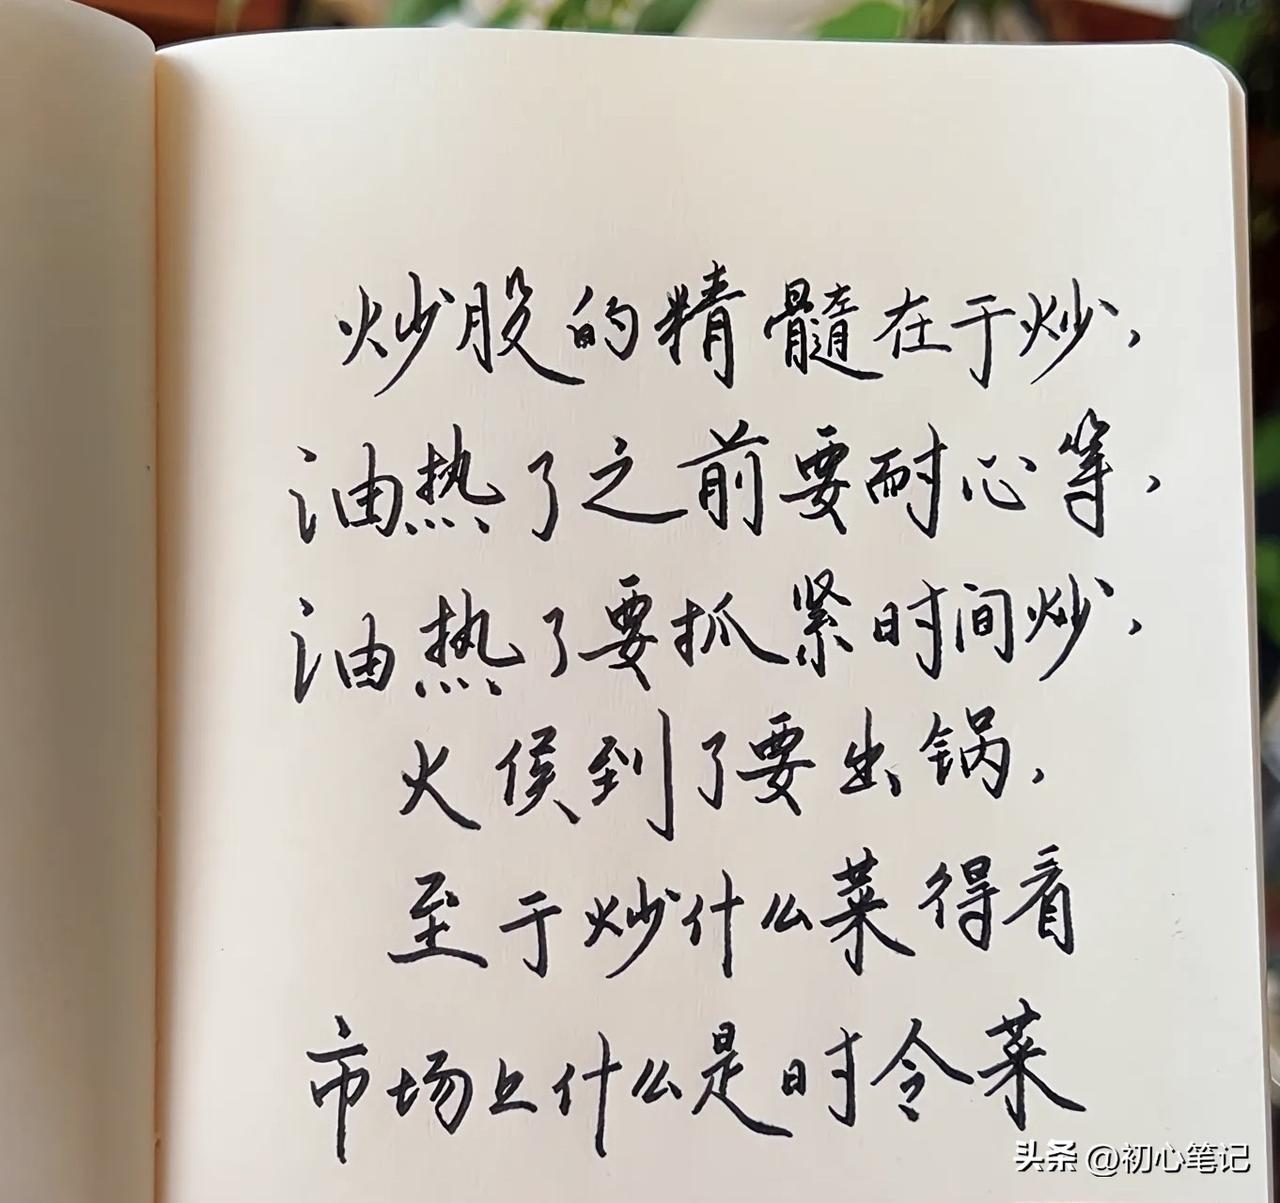 炒股的精髓在于炒,
油热了之前要耐心等,
油热了要抓紧时间炒,
火侯到了要出锅,
至于炒什么菜得看
市场上什么是时令菜
头条 @初心笔记